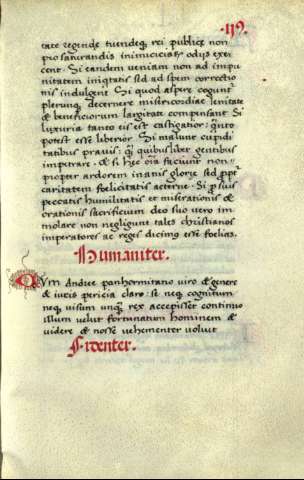 ·119·
tate regende tuendeq; rei publice non
pro saturandis inimicicijs odijs exer
cent. Si eandem veniam non ad impu
nitatem iniqtatis sed ad spem correctio
nis indulgent Si quod aspere cogunt
plerunq; decernere misericordiae lenitate
& beneficiorum largitate compensant Si
luxuria tanto eis est castigatior: qnto
potest esse liberior Si malunt cupidi
tatibus pravis: q̃ quibuslibet gentibus
imperare. & si hec oĩa faciunt non
propter ardorem inanis glorie sed ppt
caritatem foelicitatis aeterne. Si p suis
peccatis humilitatis et miserationis &
orationis sacrificium deo suo vero im
molare non negligunt tales christianos
imperatores ac reges dicimus esse foelices.
Humaniter.
QVm Andree panhormitano viro & genere
& iuris pericia claro: si neq; cognitum
neq; visum unq; rex accepisset continuo
illum velut fortunatum hominem &
videre & nosse vehementer voluit
Fidenter.